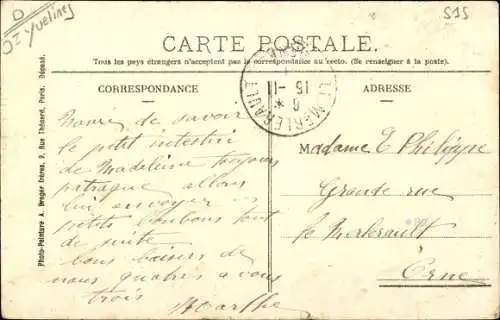 D
Yvelines
515
CARTE POSTALE.
Tous les pays étrangers n'acceptent pas la correspondance au recto. (Se renseigner à la poste).
CORRESPONDANCE
ADRESSE
LE MERLERAULT
15-11
ORNE
Photo-Peinture A. Breger frères, 9, Rue Thénard, Paris. Déposé.
Navrée de savoir
le petit intestin
de Madeleine toujours
patraque allons
lui envoyer
petits bonbons tout
de suite
bons baisers de
nous quatre a vous
trois
Marthe
Madame E Philippe
Grande rue
le Merlerault
Orne